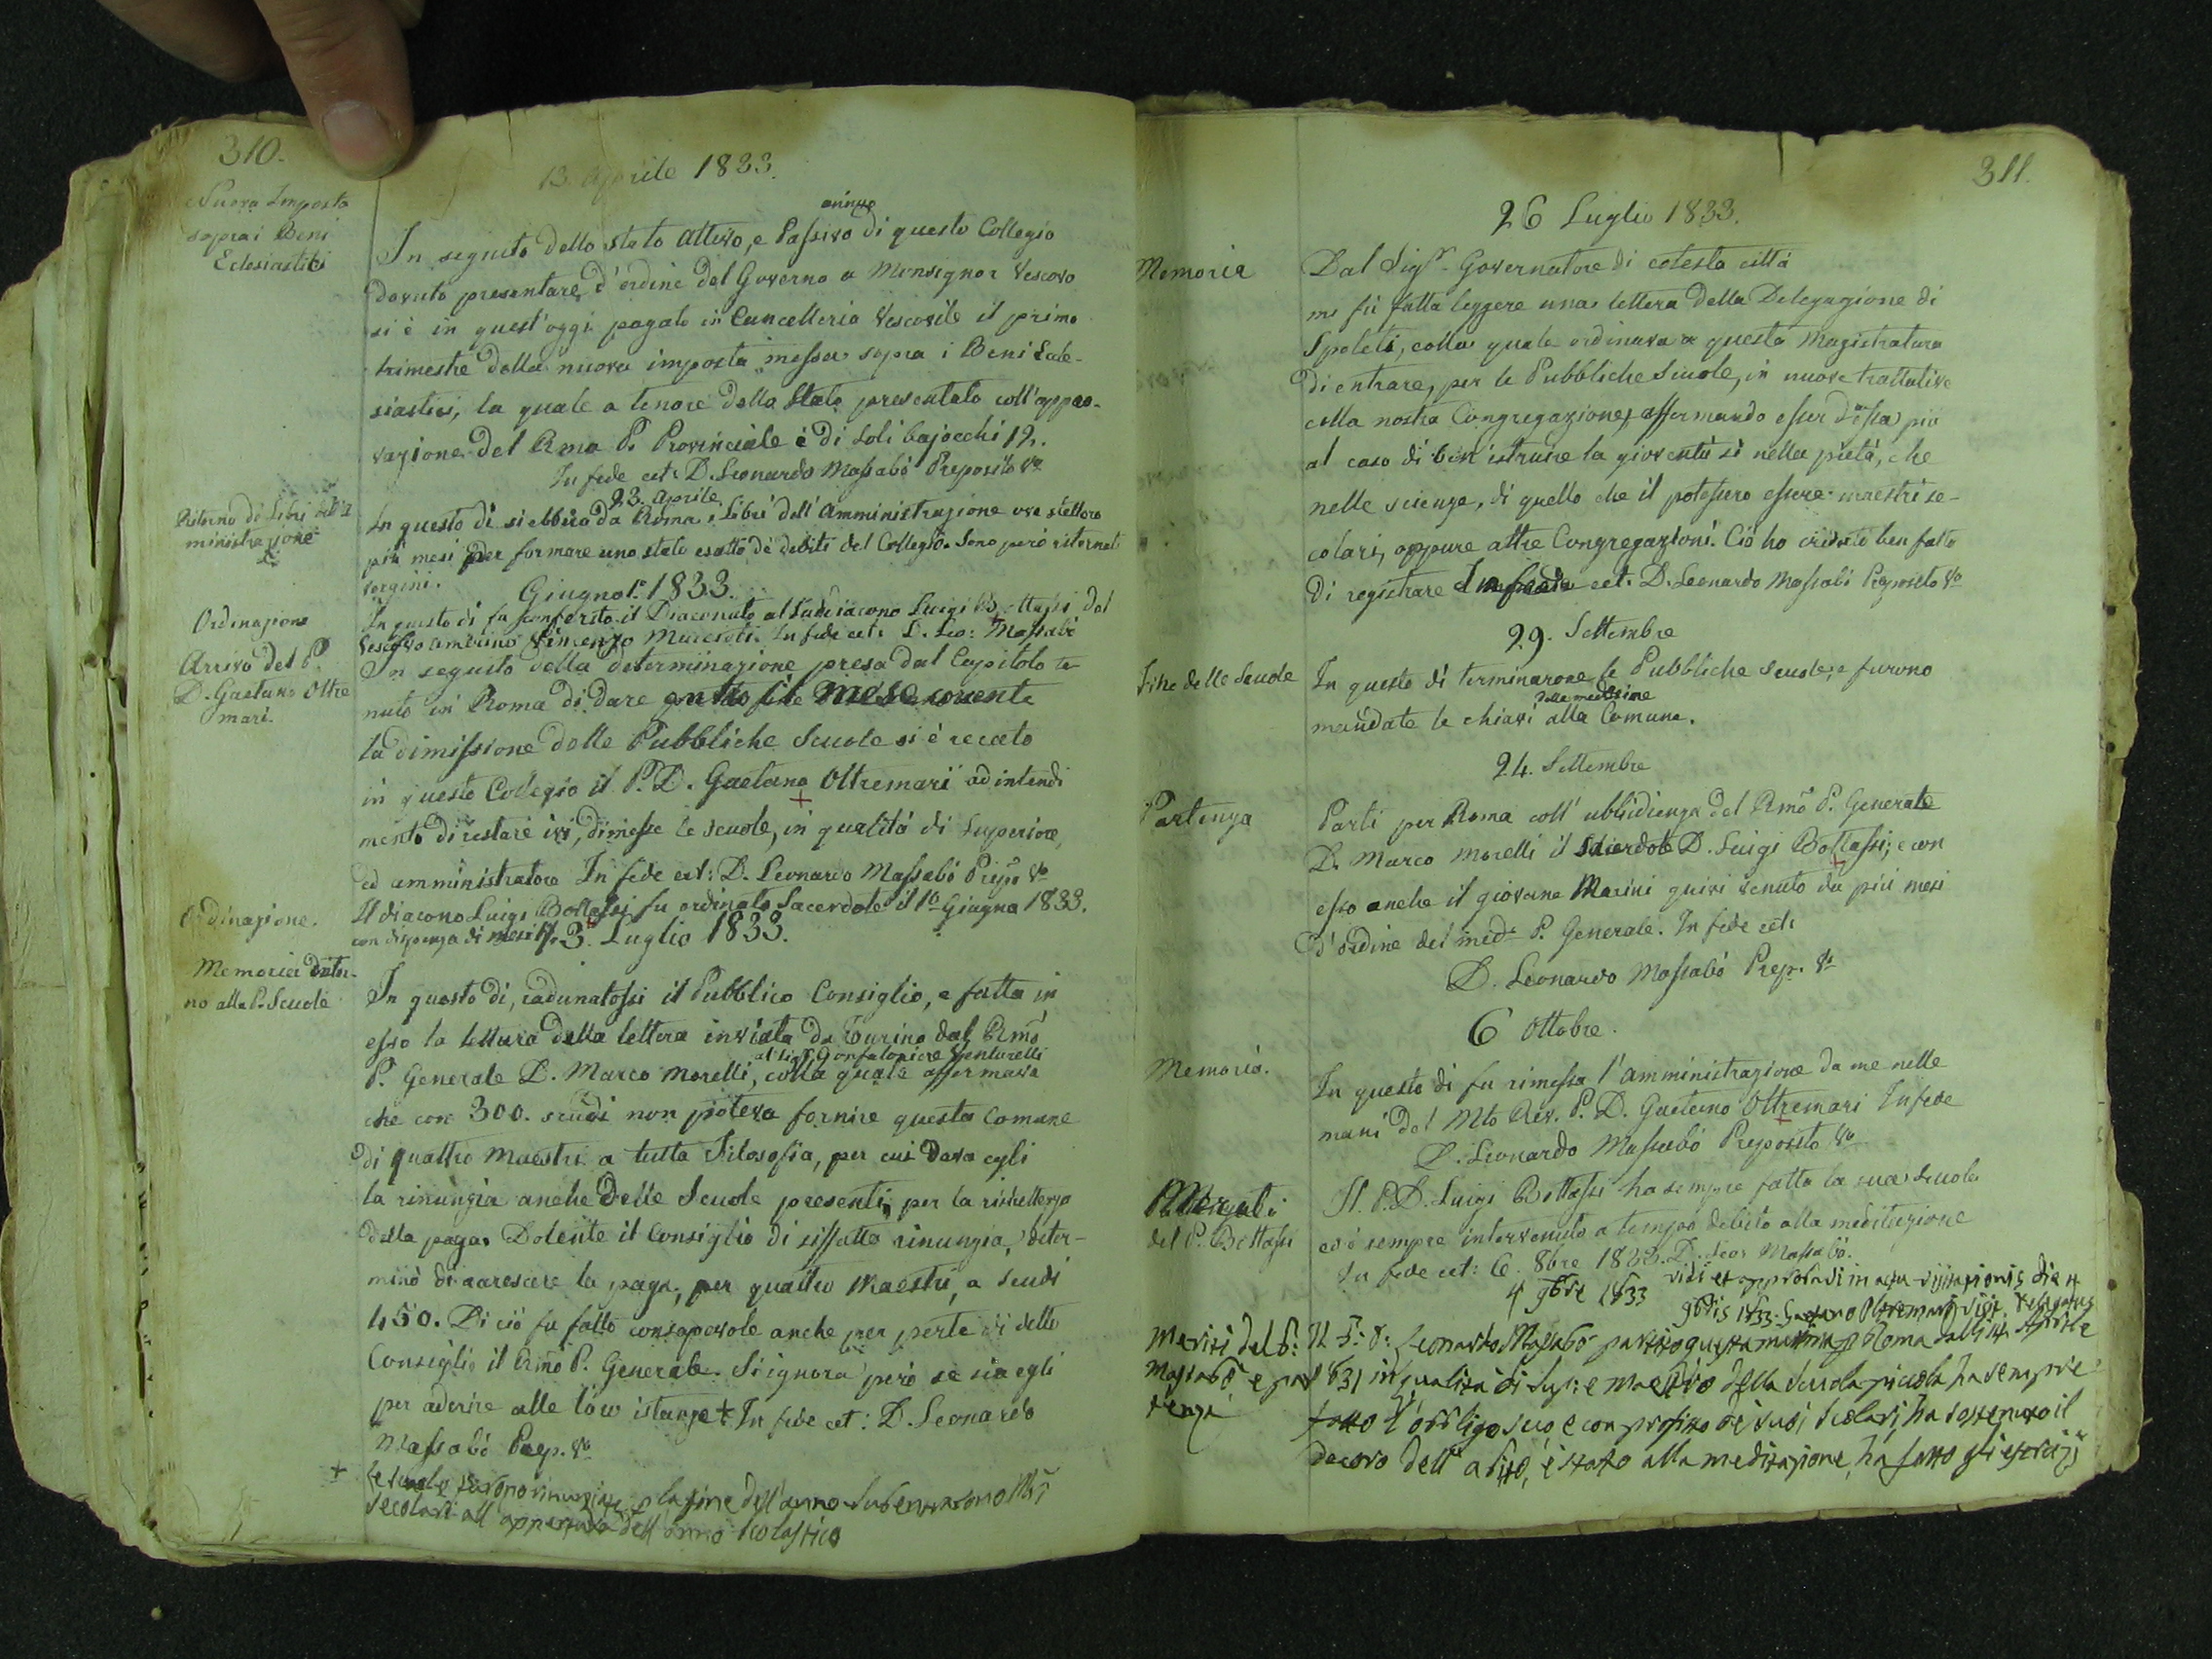 310.
13 Aprile 1833.
Nuova Imposta
sopra i Beni
Eclesiastici
annuo
In seguito dello stato attivo, e Passivo di questo Collegio
dovuto presentare d'ordine del Governo a Monsignor Vescovo
si è in quest'oggi pagato in Cancelleria Vescovile il primo
trimestre della nuova imposta messa sopra i Beni Ecle-
siastici, la quale a tenore dello Stato presentato coll'appro-
vazione del Rmo P. Provinciale è di soli bajocchi 12.
In fede cet. D. Leonardo Massabò Preposito
23. Aprile
Ritorno di Libri dell'
ministrazione
In questo dì si ebbero da Roma i Libri dell'Amministrazione ove stettero
più mesi per formare uno stato esatto de' debiti del Collegio. Sono però ritornati
vergini.
Giugno 1.° 1833.
Ordinazione
In questo dì fu conferito il Diaconato al Sudiacono Luigi Bottassi dal
Vescovo Vincenzo In fede cet. D. Leo: Massabò
Arrivo del P.
D. Gaetano Oltre
mari.
In seguito della determinazione presa dal Capitolo te-
nuto in Roma di dare entro il mese corrente
la dimissione delle Pubbliche Scuole si è recato
in questo Collegio il P. D. Gaetano Oltremari ad intendi
mento di restare ivi, dimesse le scuole, in qualità di Superiore,
ed amministratore In fede cet: D. Leonardo Massabò Prepo
Ordinazione.
Il diacono Luigi Bottassi fu ordinato Sacerdote il 16 Giugno 1833.
con dispenza di mesi 17.
3. Luglio 1833.
Memoria intor-
no alla P. Scuole
In questo dì, radunatossi il Pubblico Consiglio, e fatta in
esso la lettura della lettera inviata da Tourino dal Rmo
al Sigr Gonfaloniere Venturelli
P. Generale D. Marco Morelli, colla quale affermava
che con 300. scudi non poteva fornire questa Comune
di quattro Maestri a tutta Filosofia, per cui dava egli
la rinunzia anche delle Scuole presenti, per la ristrettezza
della paga. Dolente il Consiglio di siffatta rinunzia, deter-
minò di accrescere la paga, per quattro Maestri, a scudi
450. Di ciò fu fatto consapevole anche per parte di detto
Consiglio il Rmo P. Generale. Si ignora però se sia egli
per aderire alle loro istanze + In fede cet: D. Leonardo
Massabò Prep.
+ Le scuole furono rinunziate p la fine dell'anno Subentrarono Mri
secolari all'apertura dell'anno scolastico
311.
26 Luglio 1833.
Memoria
Dal Sigr Governatore di cotesta città
mi fù fatta leggere una lettera della Delegazione di
Spoleti, colla quale ordinava a questa Magistratura
di entrare, per le Pubbliche Scuole, in nuove trattative
colla nostra Congregazione, affermando esser dessa più
al caso di ben istruire la gioventù sì nella pietà, che
nelle scienze, di quello che il potessero essere maestri se-
colari, oppure altre Congregazioni. Ciò ho creduto ben fatto
di registrare In fede cet. D. Leonardo Massabò Preposito
29. Settembre
Fine delle Scuole
In questo dì terminarono le Pubbliche Scuole, e furono
delle medesime
mandate le chiavi alla Comune.
24. Settembre
Partenza
Partì per Roma coll'ubbidienza del Rmo P. Generale
D. Marco Morelli il Sacerdote D. Luigi Bottassi; e con
esso anche il giovane Marini quivi venuto da più mesi
d'ordine del med. P. Generale. In fede cet.
D. Leonardo Massabò Prep.
6 Ottobre.
Memoria.
In questo dì fu rimessa l'amministrazione da me nelle
mani del Mto Rev. P. D. Gaetano Oltremari In fede
D. Leonardo Massabò Preposito
Meriti
del P. Bottassi
Il P. D. Luigi Bottassi ha sempre fatta la sua scuola
ed è sempre intervenuto a tempo debito alla meditazione
In fede cet: 6. 8bre 1833. D. Leo: Massabò.
vidi et approbavi in actu visitationis die 4
9bris 1833. Gaetano Oltremari Visit. Delegatus
4 9bre 1833
Meriti del P:
Massabò e par
tenza
Il P. D: Leonardo Massabò partito questa mattina p Roma dalli 14 Aprile
1831 in qualità di Sup: e maestro della scuola piccola ha sempre
fatto l'obbligo suo e con profitto de' suoi scolari, ha sostenuto il
decoro dell'abito, è stato alla meditazione, ha fatto gli esercizj